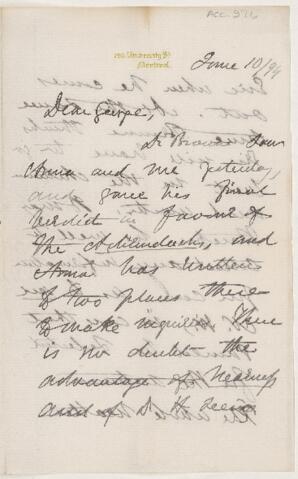 ACC. 976
University St
Montreal.
June 10/94
Dear George,
Dr Browne saw
Anna and me yesterday,
and gave his final
verdict in favour of
the Adirondacks, and
Anna has written
of two places there
to make inquiries. There
is no doubt the
advantage of nearness
and of